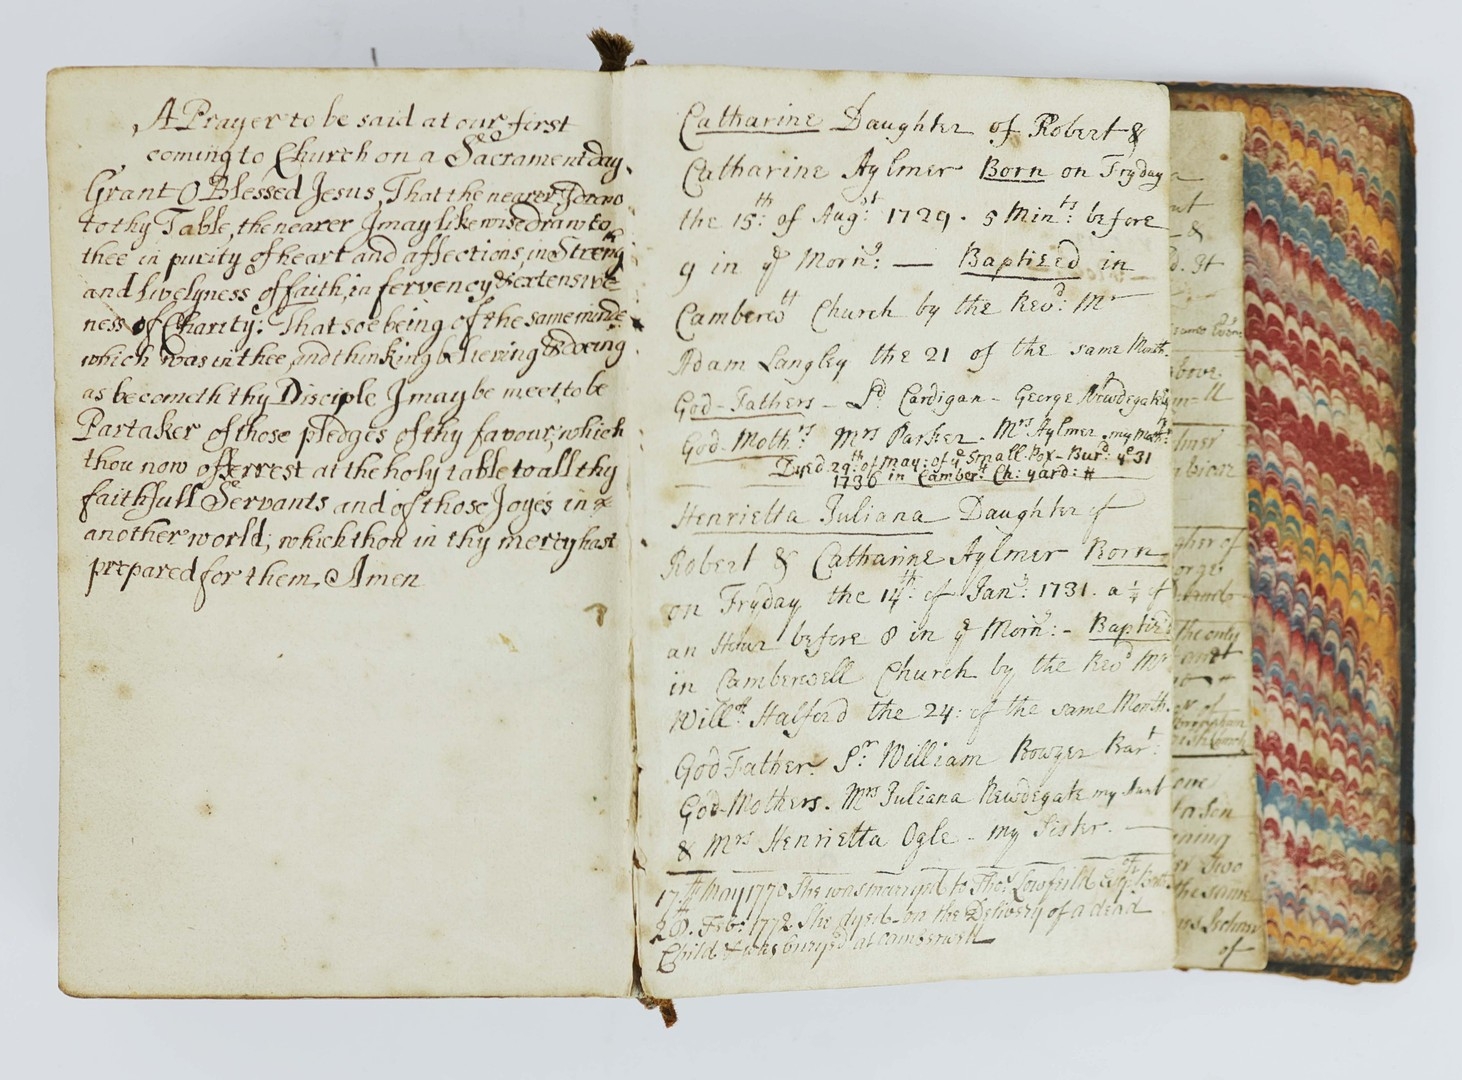 A Prayer to be said at our first
coming to Church on a Sacrament day.
Grant O Blessed Jesus, That the nearer I draw
to thy Table, the nearer I may likewise draw to
thee in purity of heart and affections, in Strength
and livelyness of faith, in fervency & extensive
ness of Charity: That soe being of the same minde
which was in thee, and thinking believing & doeing
as becometh thy Disciple I may be meet to be
Partaker of those pledges of thy favour, which
thou now offerrest at the holy table to all thy
faithfull Servants and of those Joyes in
another world, which thou in thy mercy hast
prepared for them, Amen
Catharine Daughter of Robert &
Catharine Aylmer Born on Fryday
the 15th: of Augst 1729. 5 Mints: before
9 in ye Morng: — Baptized in
Camberwll Church by the Revd: Mr
Adam Langley the 21 of the same Month.
God-Fathers - Ld Cardigan - George Newdegate
God-Mothrs Mrs Parker. Mrs Aylmer my Mothr
Dyed 29th of May: of ye Small-Pox - Burd ye 31
1736 in Camberll Ch: yard: #
Henrietta Juliana Daughter of
Robert & Catharine Aylmer Born
on Fryday the 14th: of Jany: 1731. a 1/4 of
an Hour before 8 in ye Morng: - Baptiz'd
in Camberwell Church by the Revd Mr
Willm Halford the 24: of the same Month.
God Father. Sr William Bowyer Bart:
God-Mothers. Mrs Juliana Newdegate my Aunt
& Mrs Henrietta Ogle - my Sister. —
17th May 1770 She was marryed to Thos Lowfeild Esqr
28. Feb: 1772. She dyed on the Delivery of a dead
Child & was buryed at Camberwell
&
d. It
same
above
ll
gher of
orge
the only
of
one
Son
Two
the same
of